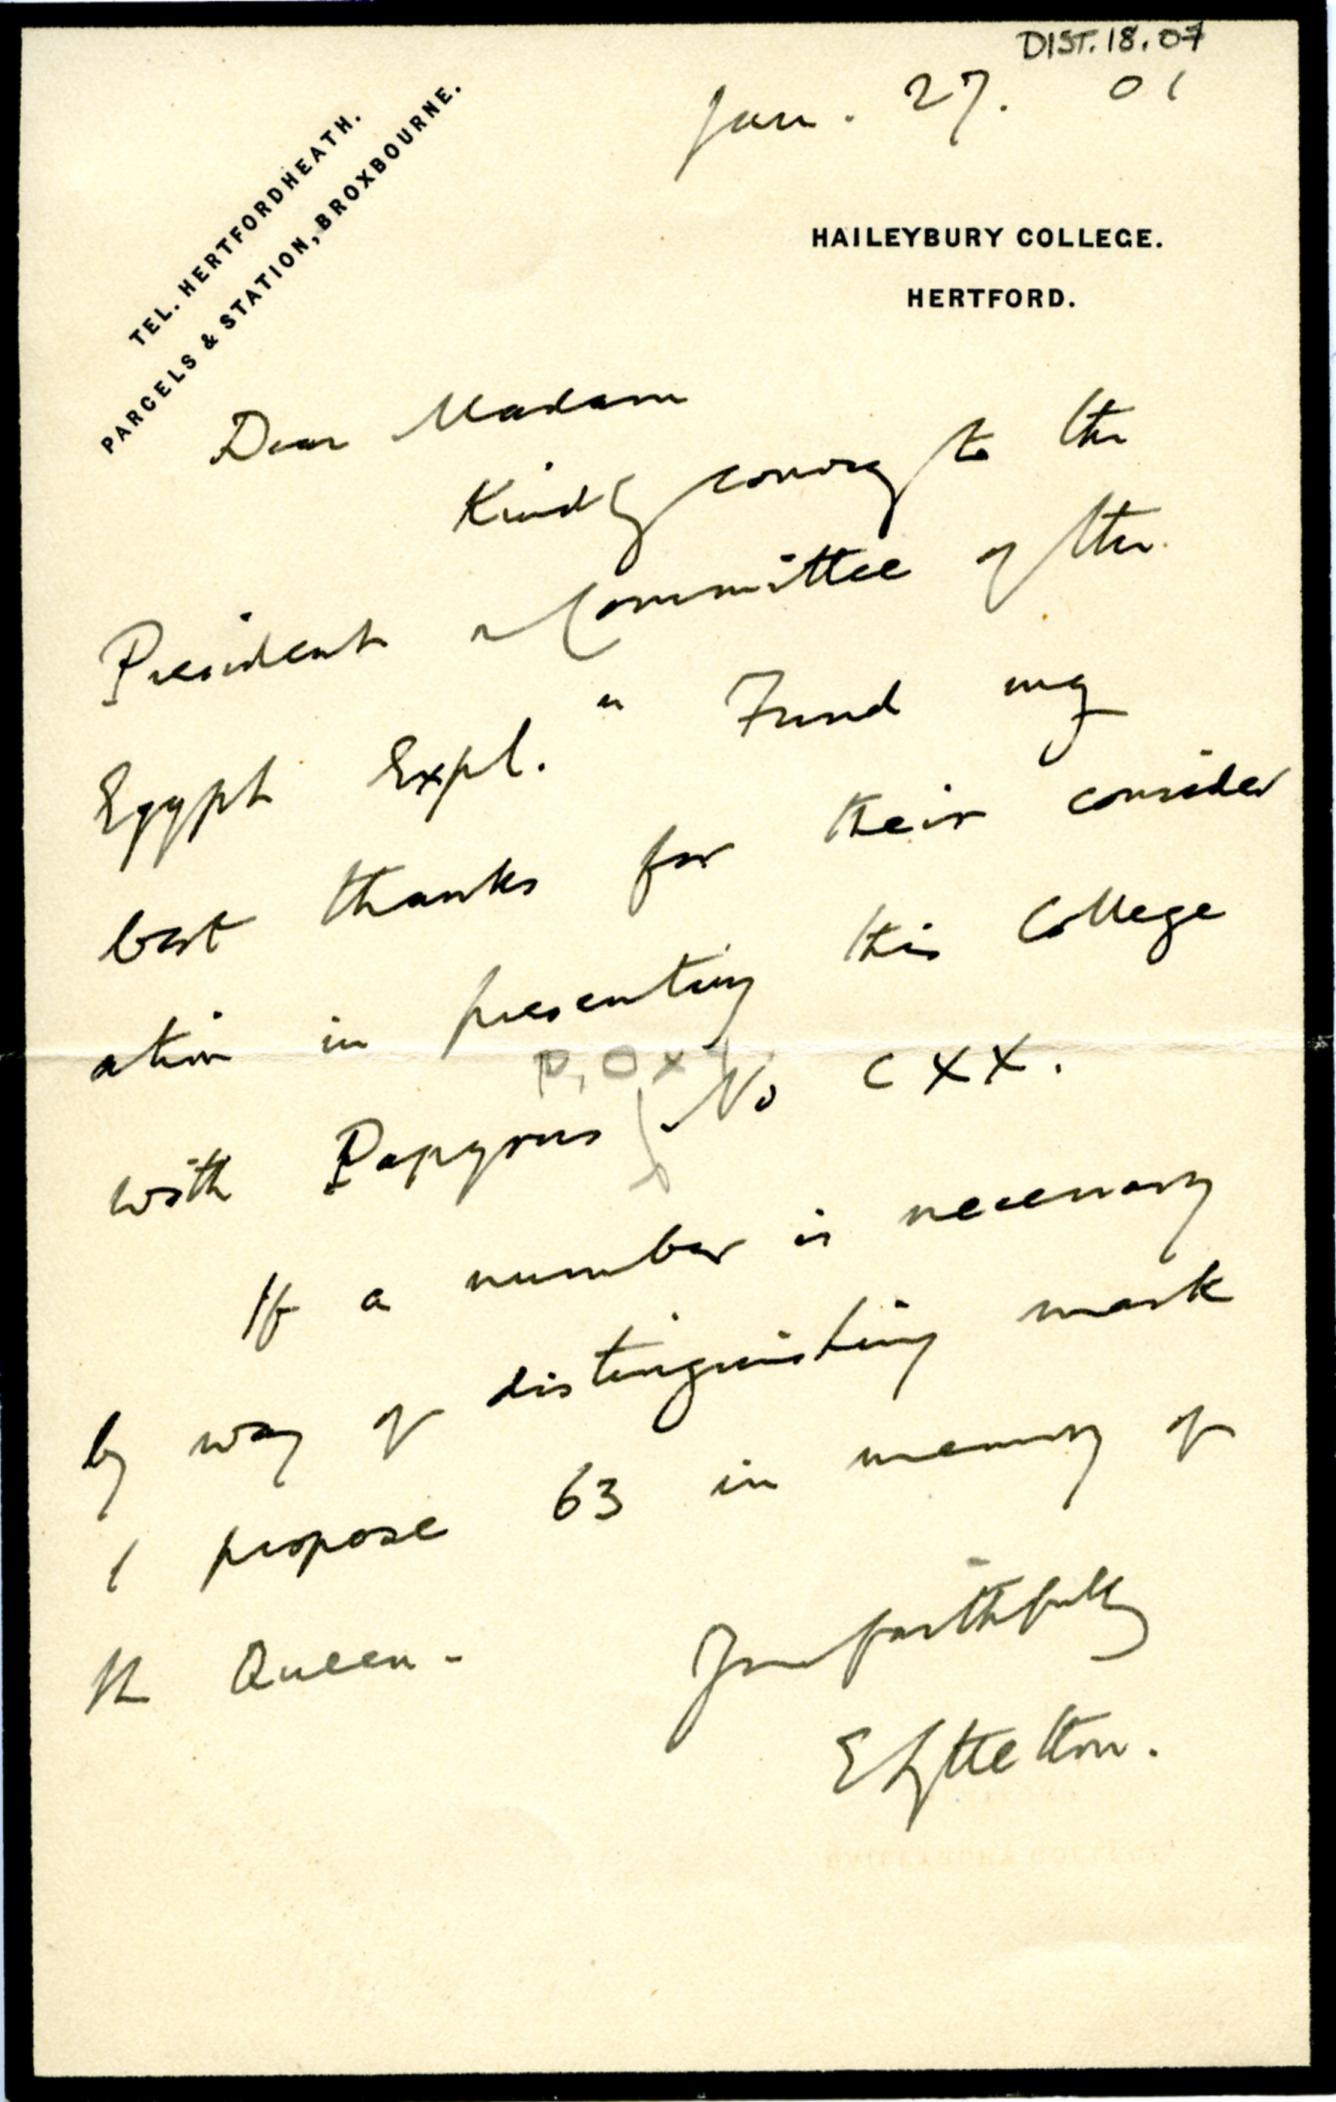 DIST.18.07
Jan. 27. 01
TEL. HERTFORDHEATH.
PARCELS & STATION, BROXBOURNE.
HAILEYBURY COLLEGE.
HERTFORD.
Dear Madam
Kindly convey to the
President & Committee of the
Egypt Expl. " Fund my
best thanks for their consider
ation in presenting this College
P. Oxy
with Papyrus No CXX.
If a number is necessary
by way of distinguishing mark
I propose 63 in memory of
the Queen.
Yours faithfully
E Lyttelton.